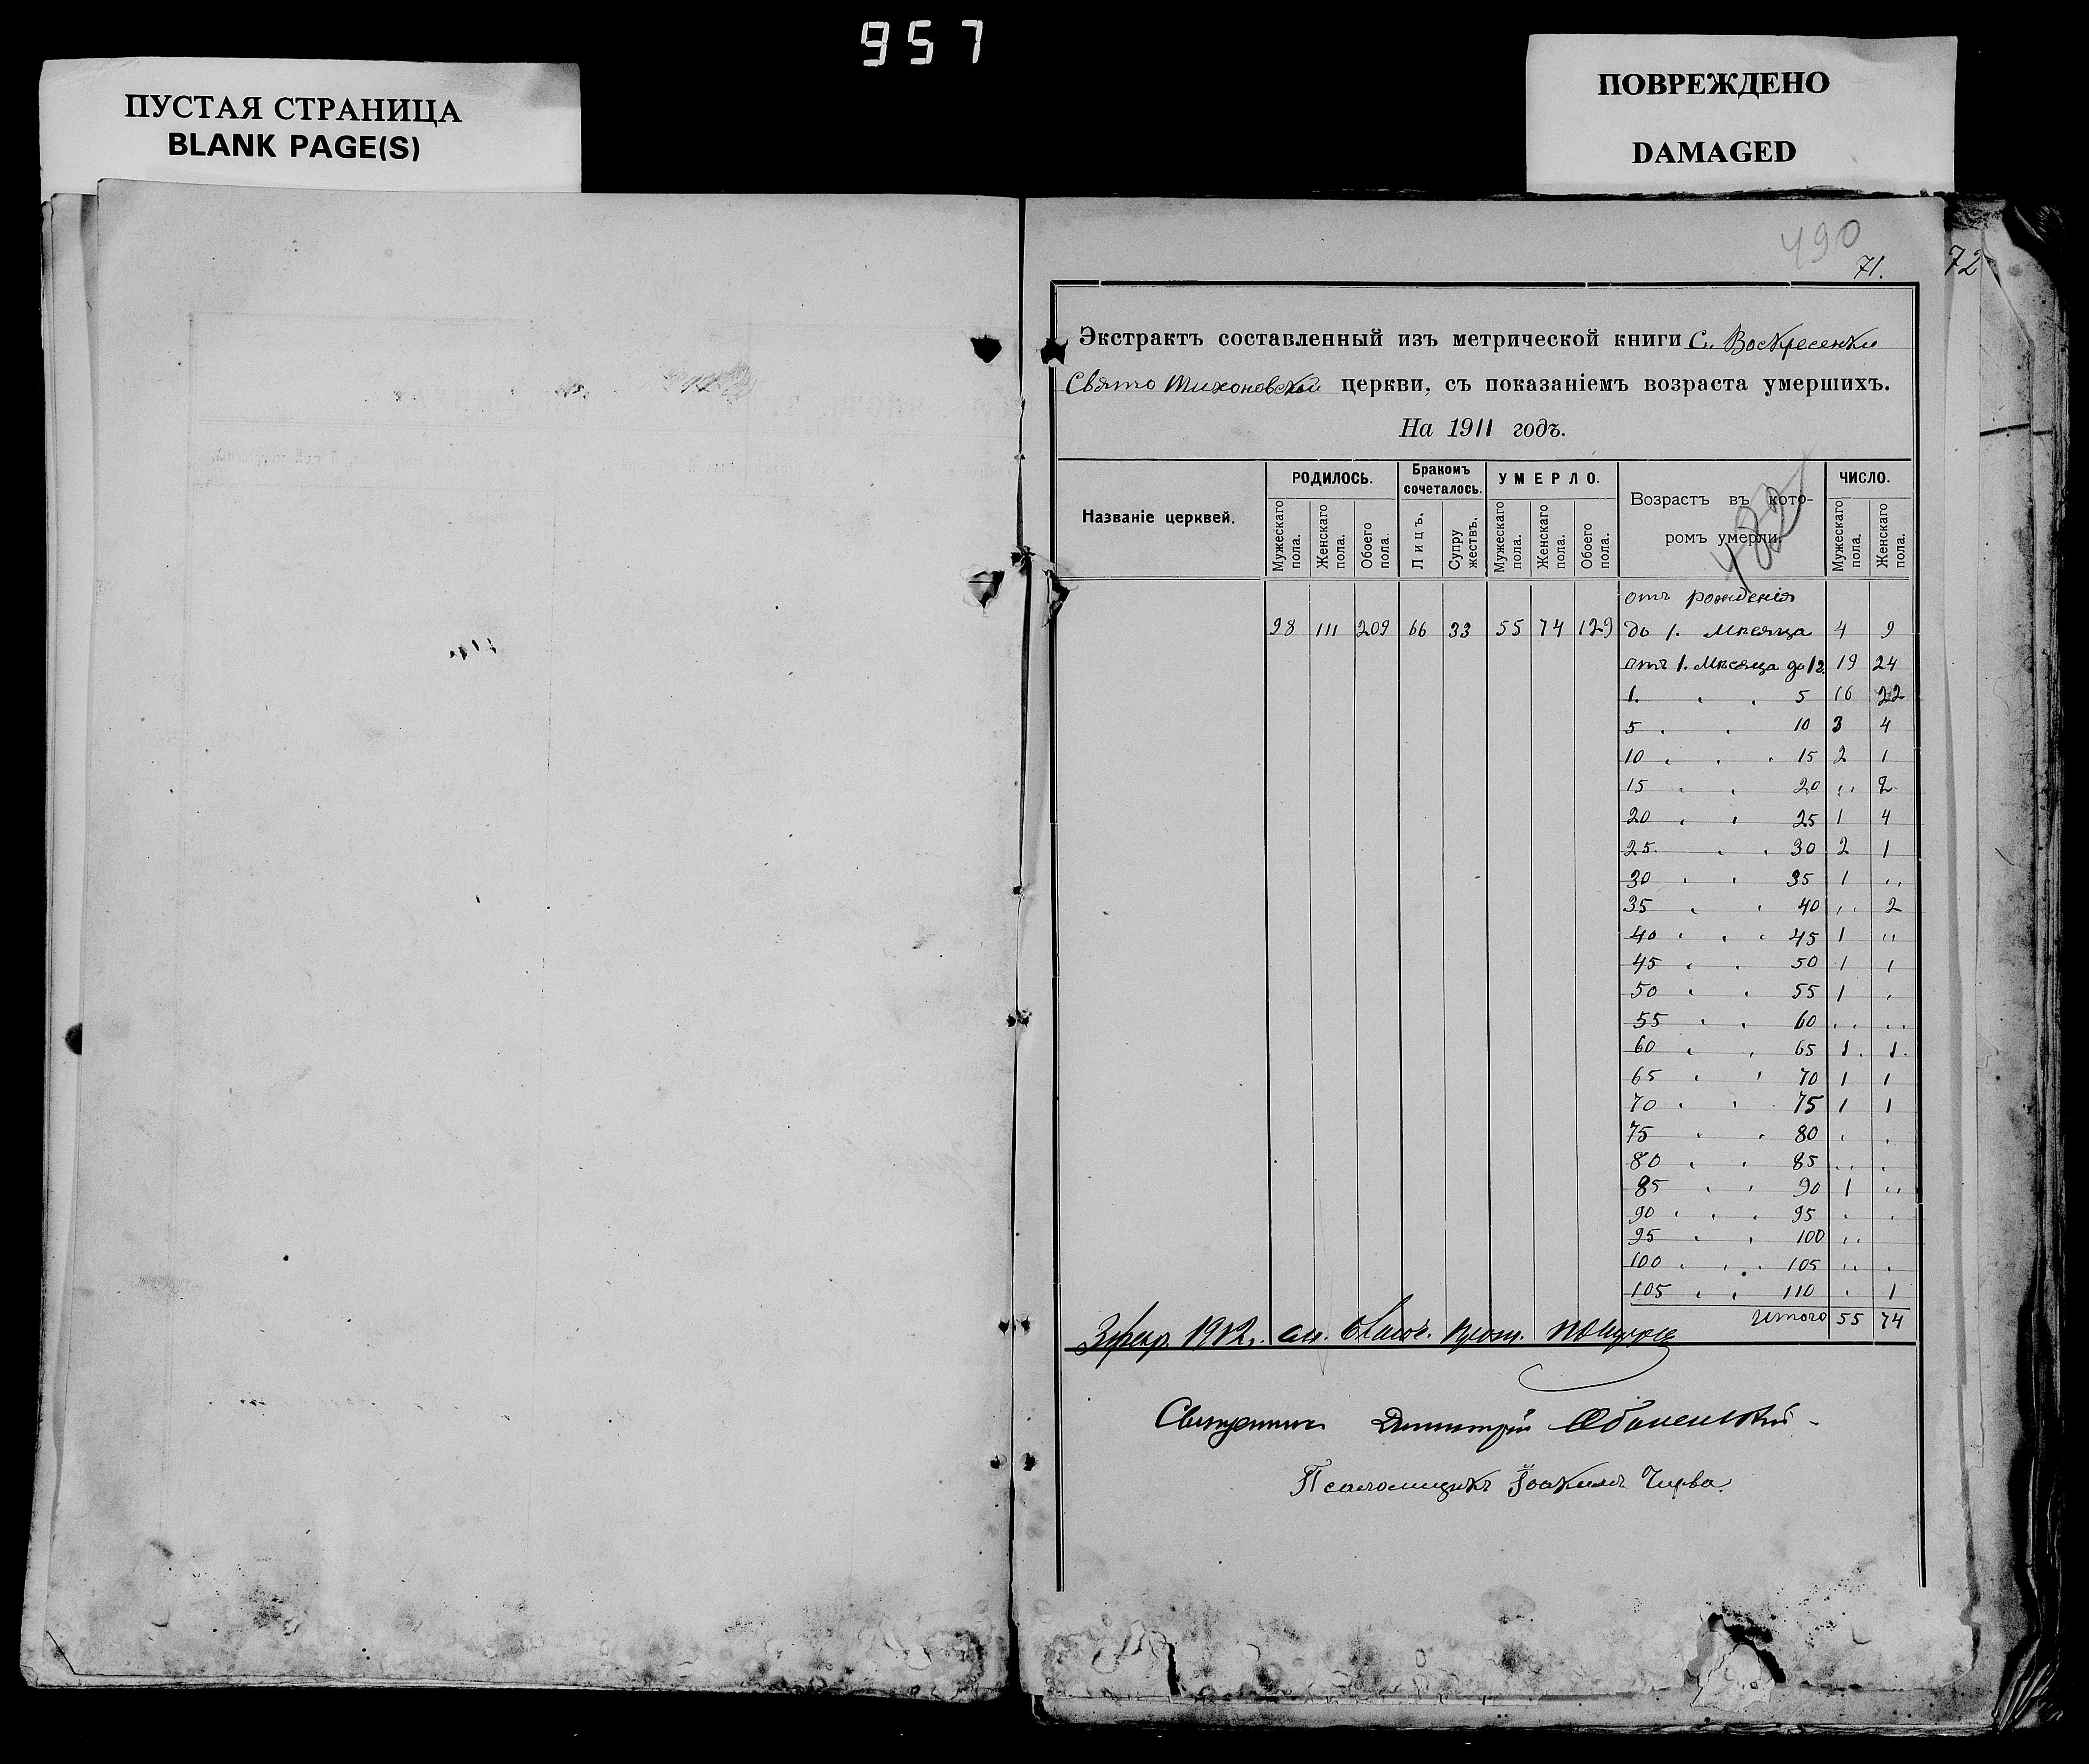 957
ПУСТАЯ СТРАНИЦА
BLANK PAGE(S)
ПОВРЕЖДЕНО
DAMAGED
490
71. 72
Экстрактъ составленный изъ метрической книги С. Воскресенки
Свято Тихоновской церкви, съ показаніемъ возраста умершихъ.
На 1911 годъ.
Названіе церквей. РОДИЛОСЬ. Бракомъ сочеталось. УМЕРЛО. Возрастъ въ кото-ромъ умерли. ЧИСЛО.
Мужескаго пола. Женскаго пола. Обоего пола. Лицъ. Супружествъ. Мужескаго пола. Женскаго пола. Обоего пола. Мужескаго пола. Женскаго пола.
отъ рожденія
98 111 209 66 33 55 74 129 до 1. Мѣсяца 4 9
отъ 1. Мѣсяца до 12. 19 24
1. " " 5 16 22
5 " " 10 3 4
10 " " " 15 2 1
15 " " 20 " 2
20 " " 25 1 4
25. " " 30 2 1
30 " " 35 1 "
35 " " 40 " 2
40 " " " 45 1 "
45 " " 50 1 1
50 " " 55 1 "
55 " " 60 " "
60 " " 65 1. 1.
65 " " 70 1 1
70 " " 75 1 1
75 " " 80 " "
80 " " 85 " "
85 " " 90 1 "
90 " " " 95 " "
95 " " 100 "
100 " " " 105 " "
105 " " 110 " 1
Итого 55 74
1912. Благоч.
Священникъ Димитрій
Псаломщикъ Іоакимъ Чирва.